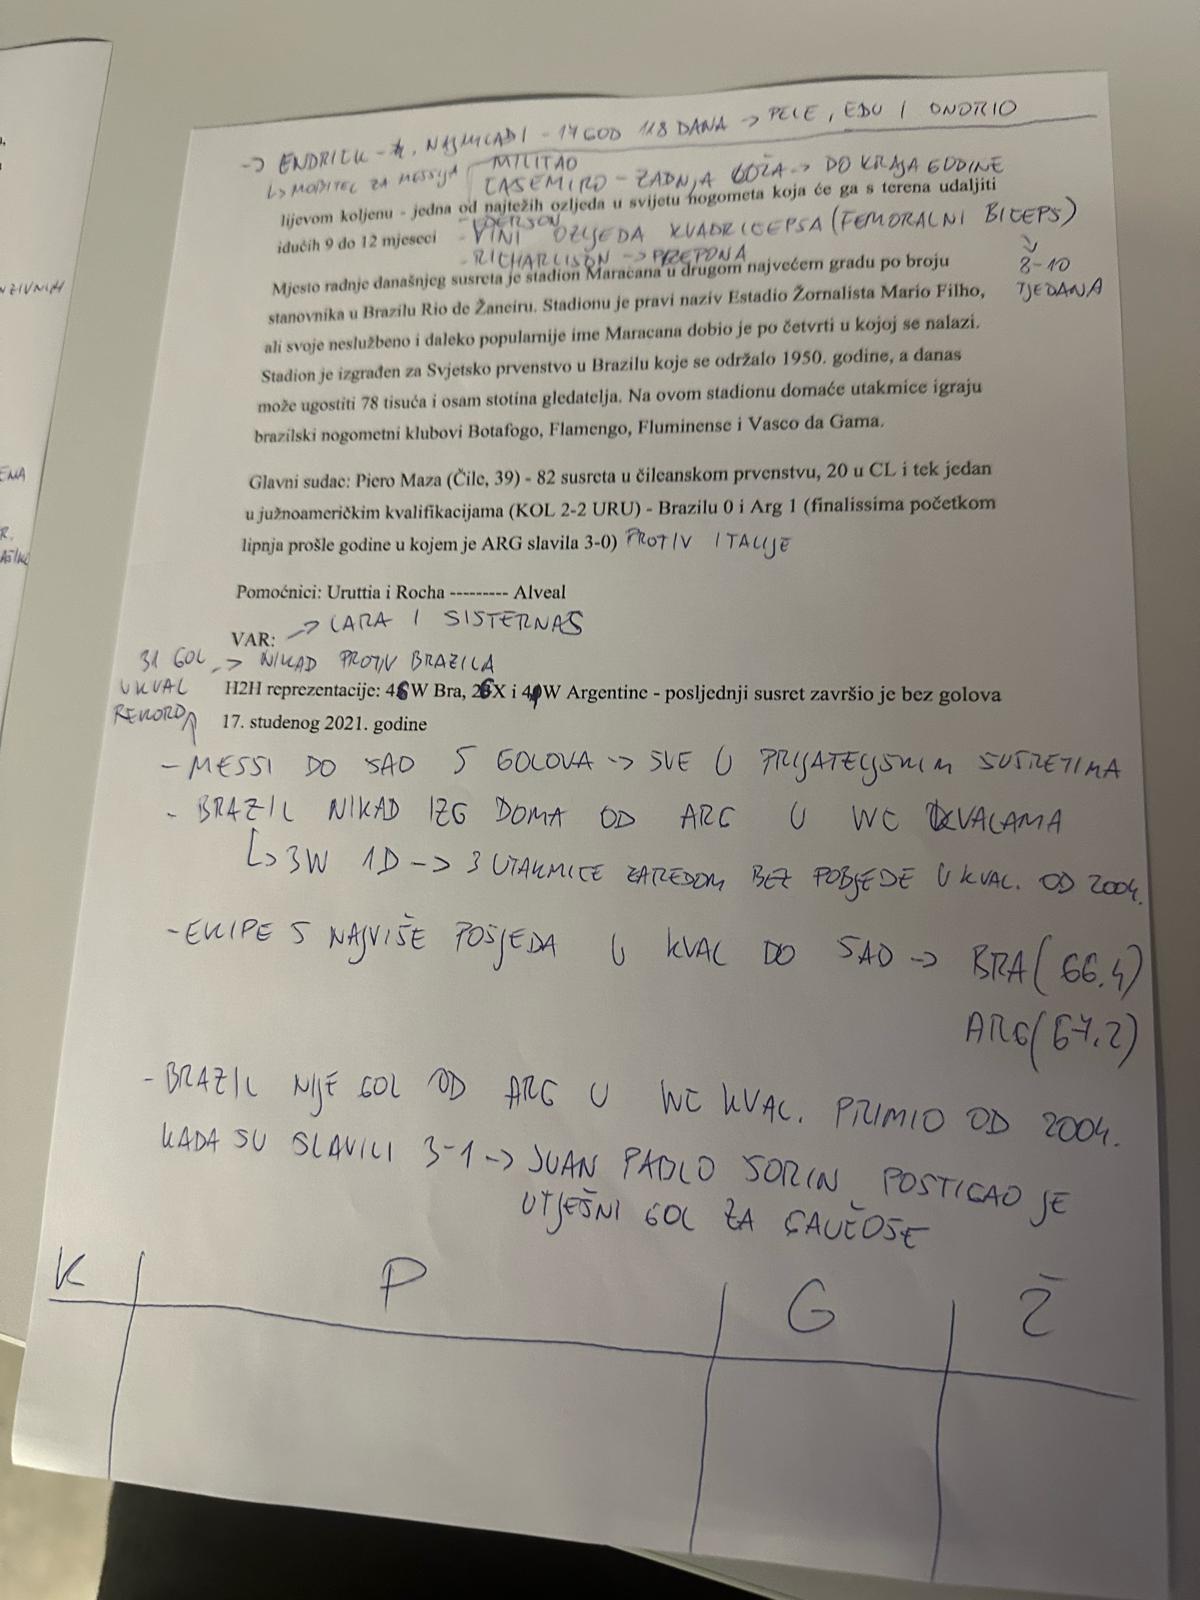 -> ENDRICK - 4. NAJMLAĐI - 17 GOD 118 DANA -> PELE, EDU I ONORIO
MILITAO
CASEMIRO - ZADNJA LOŽA -> DO KRAJA GODINE
lijevom koljenu - jedna od najtežih ozljeda u svijetu nogometa koja će ga s terena udaljiti
- EDERSON
idućih 9 do 12 mjeseci
- VINI OZLJEDA KVADRICEPSA (FEMORALNI BICEPS)
8-10
TJEDANA
- RICHARLISON -> PREPONA
Mjesto radnje današnjeg susreta je stadion Maracana u drugom najvećem gradu po broju
stanovnika u Brazilu Rio de Žaneiru. Stadionu je pravi naziv Estadio Žornalista Mario Filho,
ali svoje neslužbeno i daleko popularnije ime Maracana dobio je po četvrti u kojoj se nalazi.
Stadion je izgrađen za Svjetsko prvenstvo u Brazilu koje se održalo 1950. godine, a danas
može ugostiti 78 tisuća i osam stotina gledatelja. Na ovom stadionu domaće utakmice igraju
brazilski nogometni klubovi Botafogo, Flamengo, Fluminense i Vasco da Gama.
Glavni sudac: Piero Maza (Čile, 39) - 82 susreta u čileanskom prvenstvu, 20 u CL i tek jedan
u južnoameričkim kvalifikacijama (KOL 2-2 URU) - Brazilu 0 i Arg 1 (finalissima početkom
lipnja prošle godine u kojem je ARG slavila 3-0) PROTIV ITALIJE
Pomoćnici: Uruttia i Rocha --------- Alveal
VAR: -> LARA I SISTERNAS
31 GOL -> NIKAD PROTIV BRAZILA
U KVAL
REKORD
H2H reprezentacije: 46W Bra, 26X i 40W Argentine - posljednji susret završio je bez golova
17. studenog 2021. godine
- MESSI DO SAD 5 GOLOVA -> SVE U PRIJATELJSKIM SUSRETIMA
- BRAZIL NIKAD IZG DOMA OD ARG U WC KVALAMA
3W 1D -> 3 UTAKMICE ZAREDOM BEZ POBJEDE U KVAL. OD 2004.
- EKIPE S NAJVIŠE POSJEDA U KVAL DO SAD -> BRA (66.4)
ARG (67.2)
- BRAZIL NIJE GOL OD ARG U WC KVAL. PRIMIO OD 2004.
KADA SU SLAVILI 3-1 -> JUAN PABLO SORIN POSTIGAO JE
UTJEŠNI GOL ZA GAUČOSE
K P G Ž